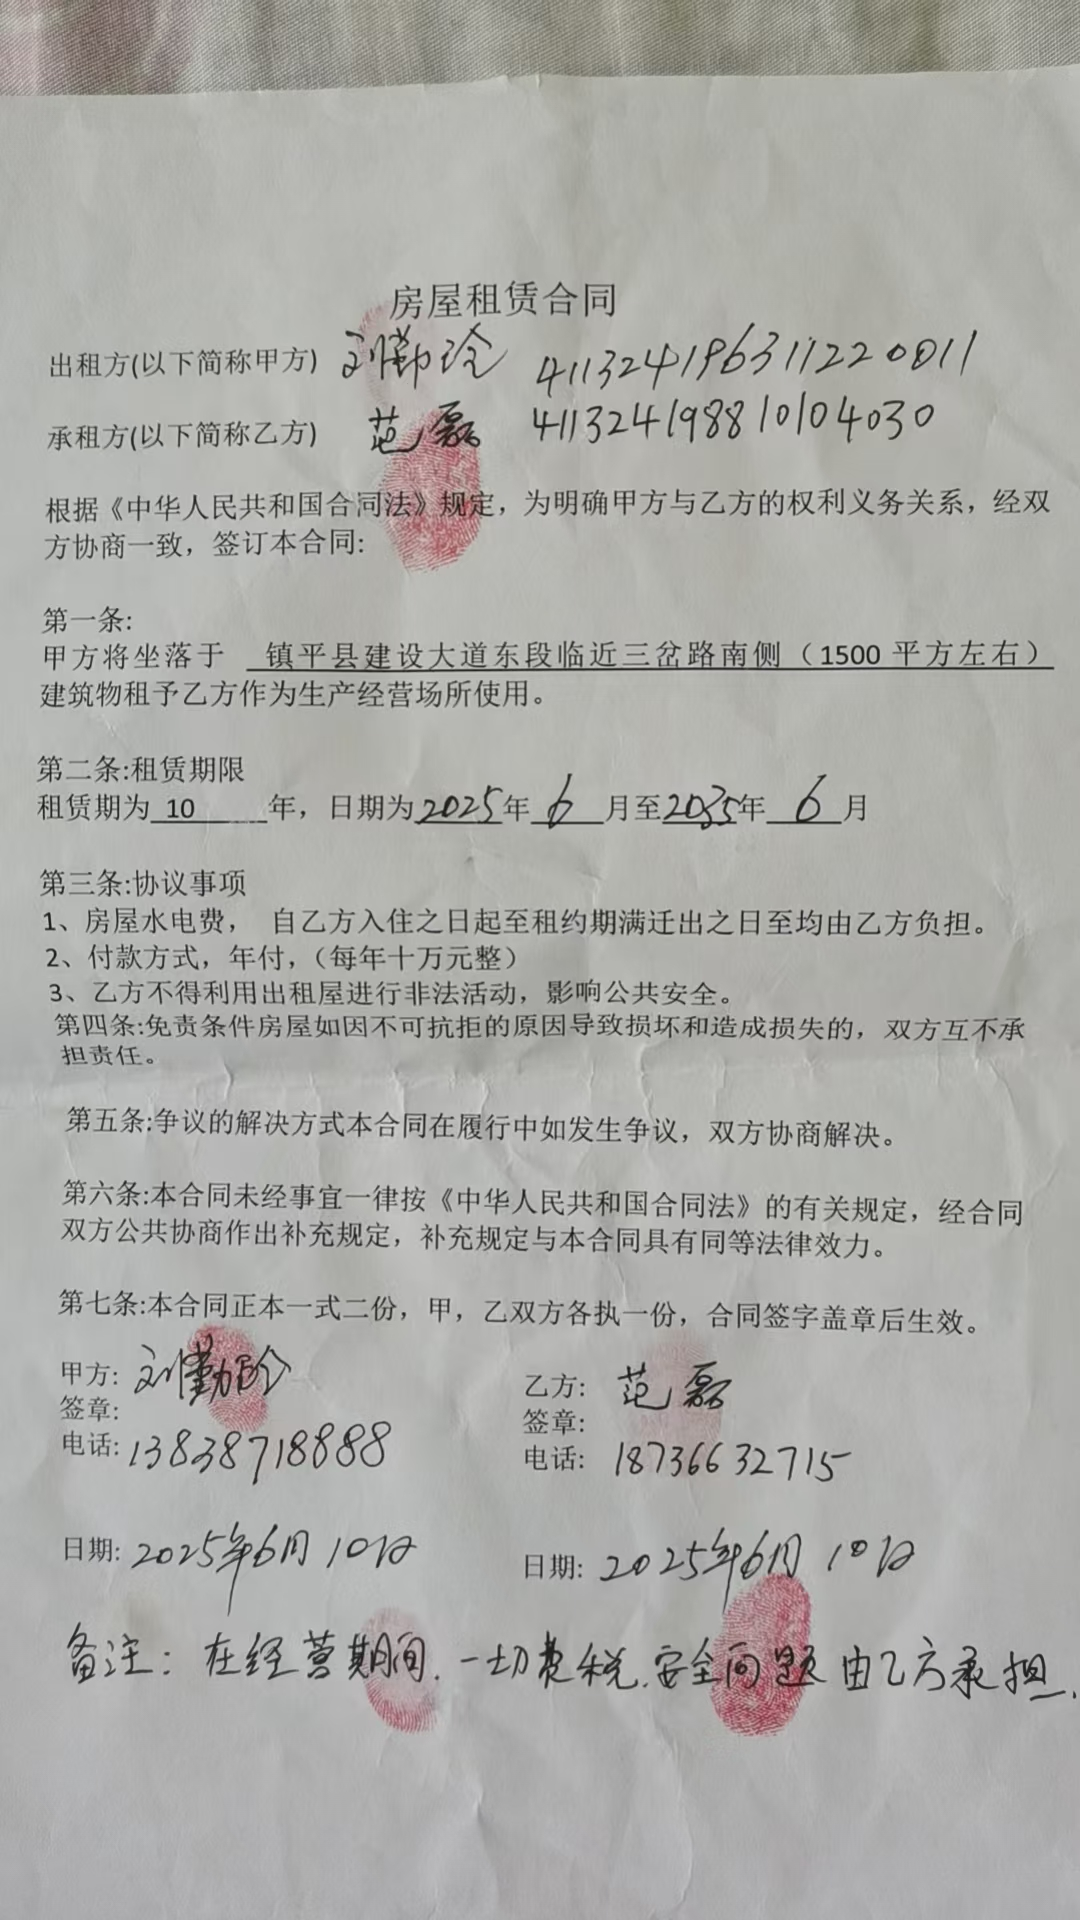 房屋租赁合同
出租方(以下简称甲方) 刘勤玲 411324196311220011
承租方(以下简称乙方) 范磊 411324198810104030
根据《中华人民共和国合同法》规定，为明确甲方与乙方的权利义务关系，经双
方协商一致，签订本合同:
第一条:
甲方将坐落于 镇平县建设大道东段临近三岔路南侧（1500 平方左右）
建筑物租予乙方作为生产经营场所使用。
第二条:租赁期限
租赁期为 10 年，日期为2025年 6 月至2035年 6 月
第三条:协议事项
1、房屋水电费， 自乙方入住之日起至租约期满迁出之日至均由乙方负担。
2、付款方式，年付，（每年十万元整）
3、乙方不得利用出租屋进行非法活动，影响公共安全。
第四条:免责条件房屋如因不可抗拒的原因导致损坏和造成损失的，双方互不承
担责任。
第五条:争议的解决方式本合同在履行中如发生争议，双方协商解决。
第六条:本合同未经事宜一律按《中华人民共和国合同法》的有关规定，经合同
双方公共协商作出补充规定，补充规定与本合同具有同等法律效力。
第七条:本合同正本一式二份，甲，乙双方各执一份，合同签字盖章后生效。
甲方: 刘勤玲
签章:
电话: 13838718888
乙方: 范磊
签章:
电话: 18736632715
日期: 2025年6月10日
日期: 2025年6月10日
备注：在经营期间.一切费税.安全问题由乙方承担.